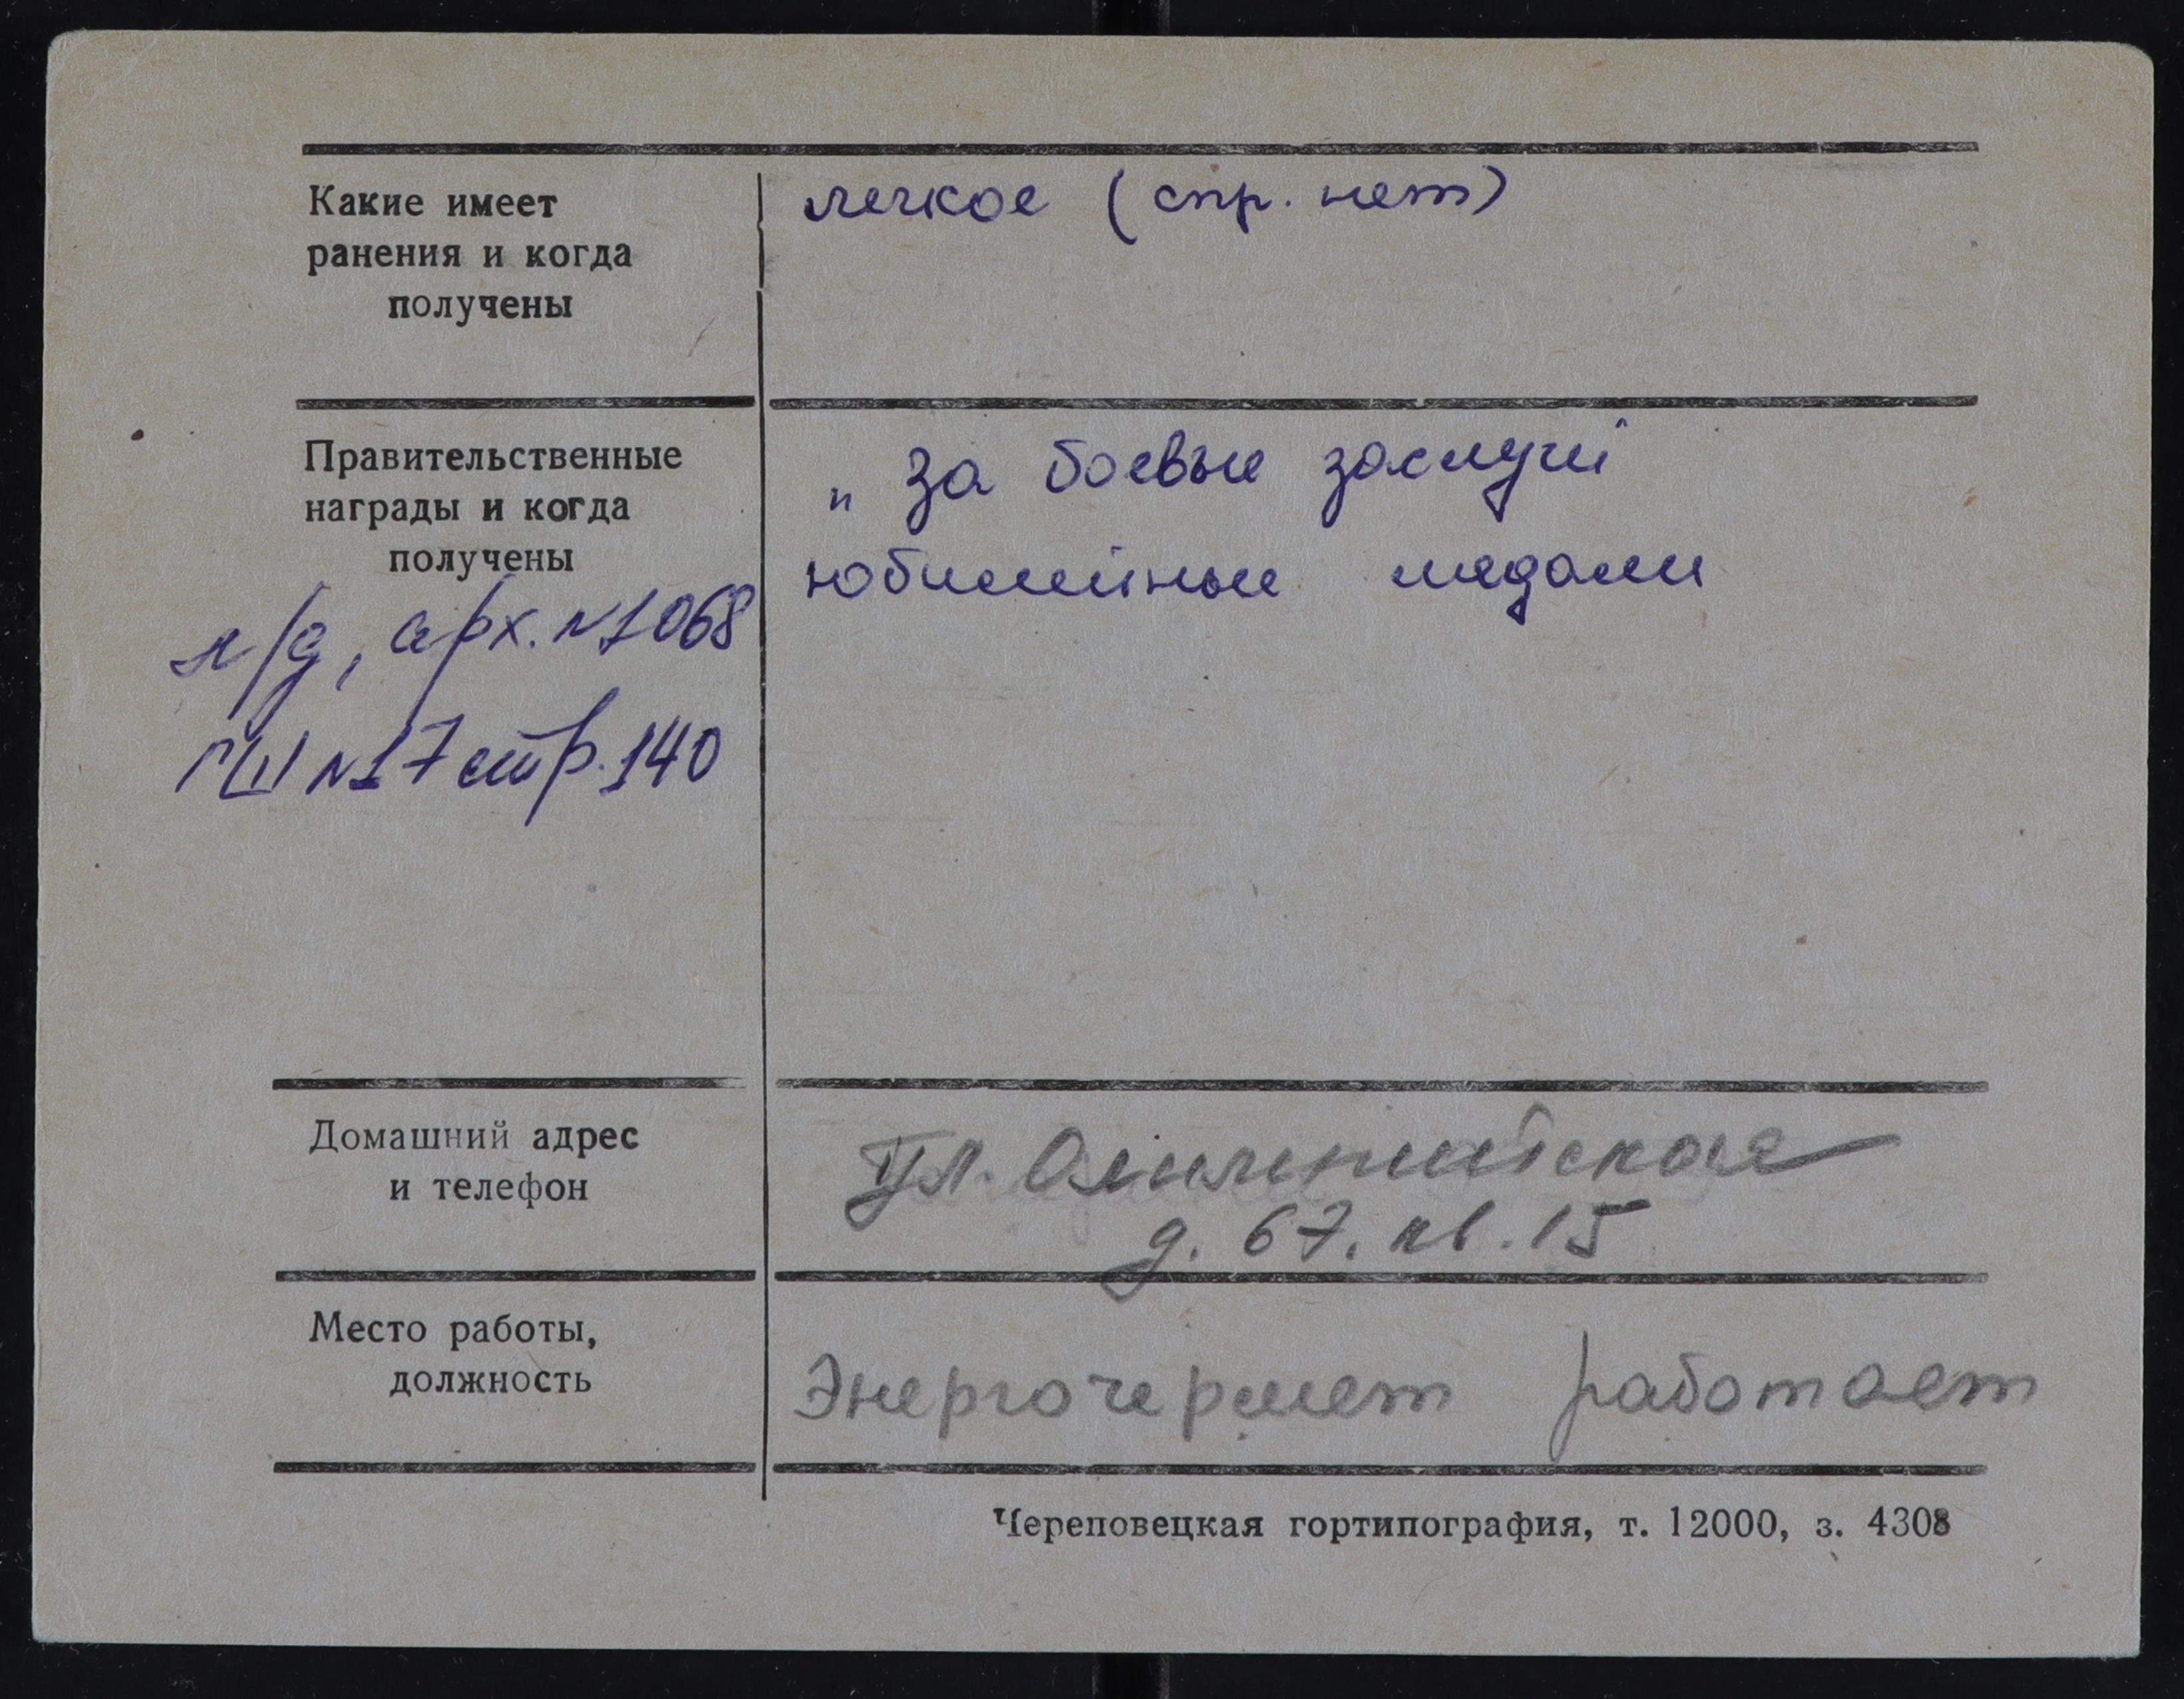 Какие имеет
ранения и когда
получены
легкое (спр. нет)
Правительственные
награды и когда
получены
„За боевые заслуги“
юбилейные медали
л/д, арх. №1068
ГШ №17 стр. 140
Домашний адрес
и телефон
ул. Олимпийская
д. 67. кв. 15
Место работы,
должность
Энергочермет работает
Череповецкая гортипография, т. 12000, з. 4308